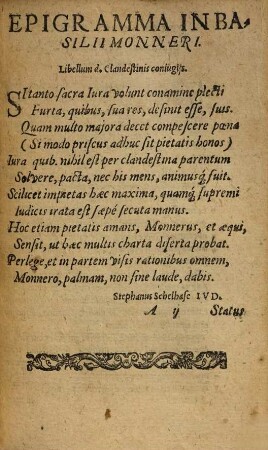 EPIGRAMMA IN BA-
SILII MONNERI.
Libellum è. Clandestinis coniūgijs.
SI tanto sacra Iura volunt conamine plecti
Furta, quibus, sua res, desinit esse, suis.
Quam multo majora decet compescere pœna
(Si modo priscus adhuc sit pietatis honos)
Iura quib. nihil est per clandestina parentum
Solvere, pacta, nec his mens, animusq́; suit.
Scilicet impietas hæc maxima, quamq́; supremi
Iudicis irata est sæpè secuta manus.
Hoc etiam pietatis amans, Monnerus, et æqui,
Sensit, ut hæc multis charta diserta probat.
Perlege, et in partem visis rationibus omnem,
Monnero, palmam, non sine laude, dabis.
Stephanus Schelhase I V D.
A ij Status